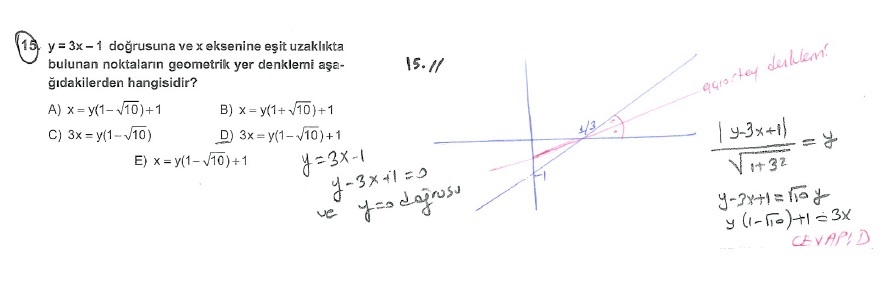 15. y = 3x – 1 doğrusuna ve x eksenine eşit uzaklıkta
bulunan noktaların geometrik yer denklemi aşa-
ğıdakilerden hangisidir?
A) x = y(1 – √10) + 1 B) x = y(1 + √10) + 1
C) 3x = y(1 – √10) D) 3x = y(1 – √10) + 1
E) x = y(1 – √10) + 1
y = 3x-1
y-3x+1=0
ve y=0 doğrusu
15.//
1/3
-1
açıortay denklemi!
|y-3x+1| / √1+3² = y
y-3x+1=√10 y
y(1-√10)+1=3x
CEVAP: D